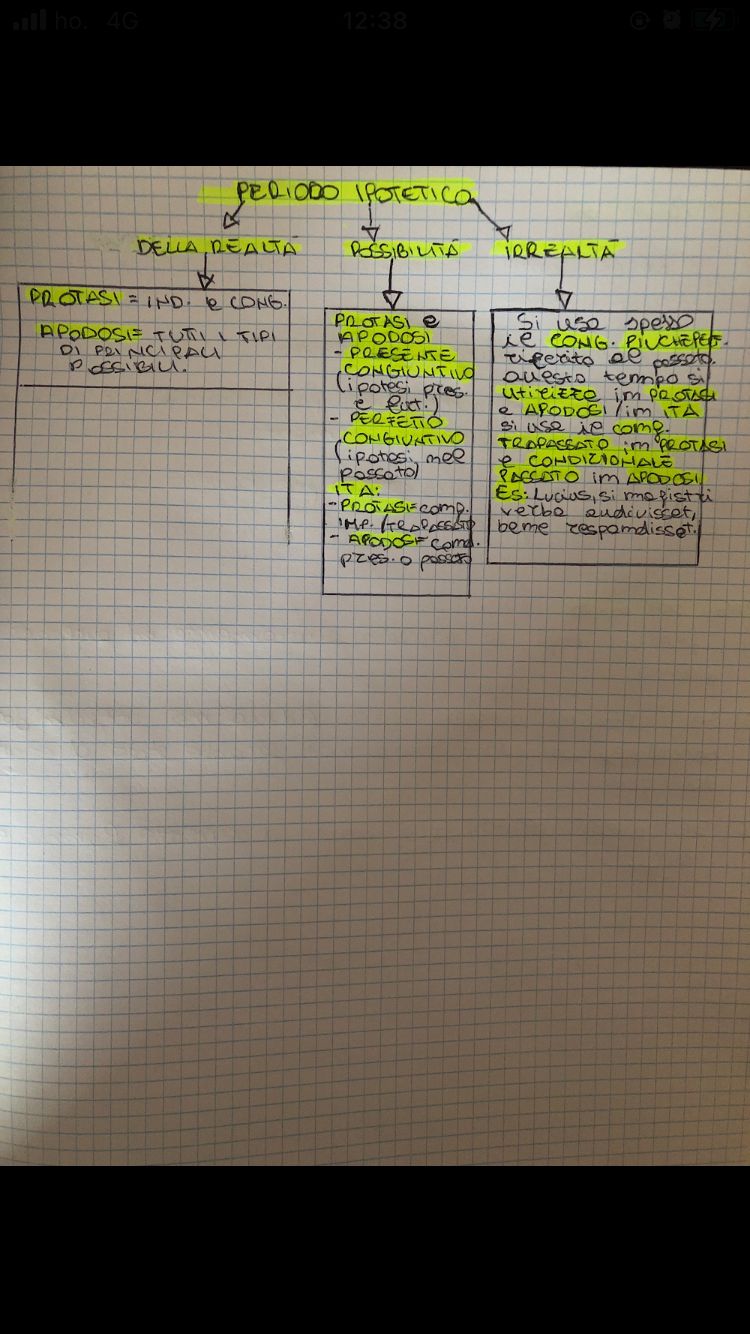 ho. 4G 12:38
PERIODO IPOTETICO
DELLA REALTÀ
POSSIBILITÀ
IRREALTÀ
PROTASI = IND. e CONG.
APODOSI = TUTTI I TIPI
DI PRINCIPALI
POSSIBILI.
PROTASI e
APODOSI
- PRESENTE
CONGIUNTIVO
(ipotesi pres.
e fut.)
- PERFETTO
CONGIUNTIVO
(ipotesi nel
passato)
ITA:
- PROTASI = cong.
IMP. / TRAPASSATO
- APODOSI = cond.
pres. o passato
Si usa spesso
il CONG. PIUCHEPERF.
riferito al passato.
questo tempo si
utilizza in PROTASI
e APODOSI / in ITA
si usa il cong.
TRAPASSATO in PROTASI
e CONDIZIONALE
PASSATO in APODOSI
Es: Lucius, si magistri
verba audivisset,
bene respondisset.